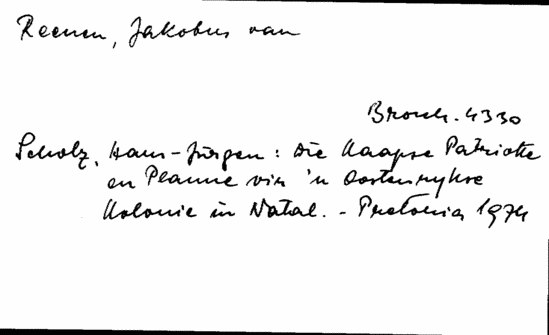 Reenen, Jakobus van
Brosch. 4330
Scholz, Hans-Jürgen: Die Kaapse Patriotte
en Planne vir 'n Oostenrykse
Kolonie in Natal. - Pretoria 1974